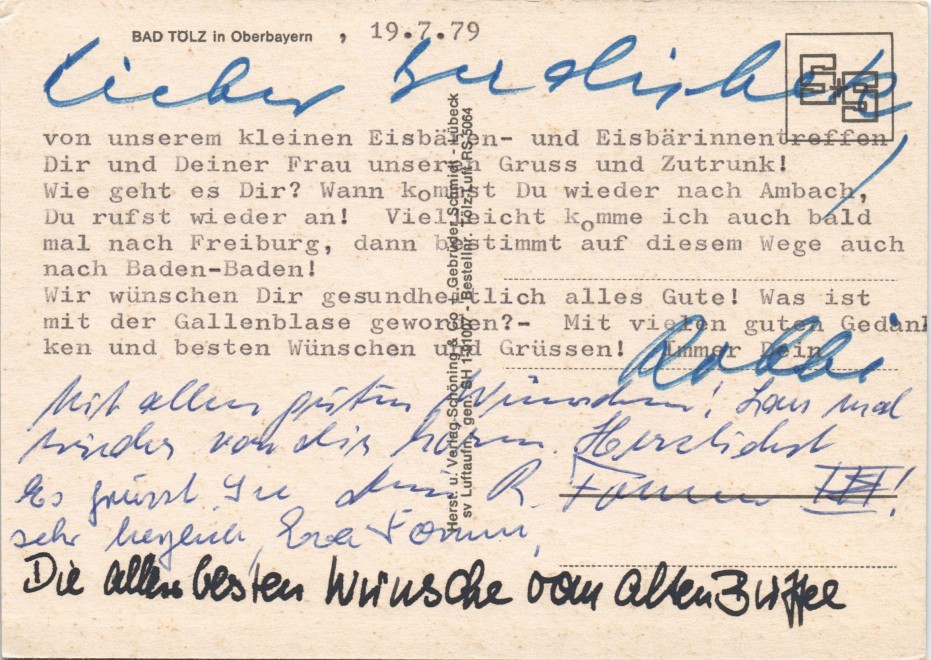 BAD TÖLZ in Oberbayern , 19.7.79
E+S
Lieber
von unserem kleinen Eisbären- und Eisbärinnentreffen
Dir und Deiner Frau unsern Gruss und Zutrunk!
Wie geht es Dir? Wann kommst Du wieder nach Ambach,
Du rufst wieder an! Vielleicht komme ich auch bald
mal nach Freiburg, dann bestimmt auf diesem Wege auch
nach Baden-Baden!
Wir wünschen Dir gesundheitlich alles Gute! Was ist
mit der Gallenblase geworden?- Mit vielen guten Gedan
ken und besten Wünschen und Grüssen! Immer Dein
Robbi
Mit allen guten Wünschen! Lass mal
wieder von dir hören. Herzlichst
dein R. III!
Es grüsst Sie
sehr herzlich, Eva
Die allerbesten Wünsche vom alten
Herst. u. Verlag Schöning & Co + Gebrüder Schmidt - Lübeck
sv Luftaufn. gen. SH 1-91007 - Bestellnr. Tölz-Luft RS 5064